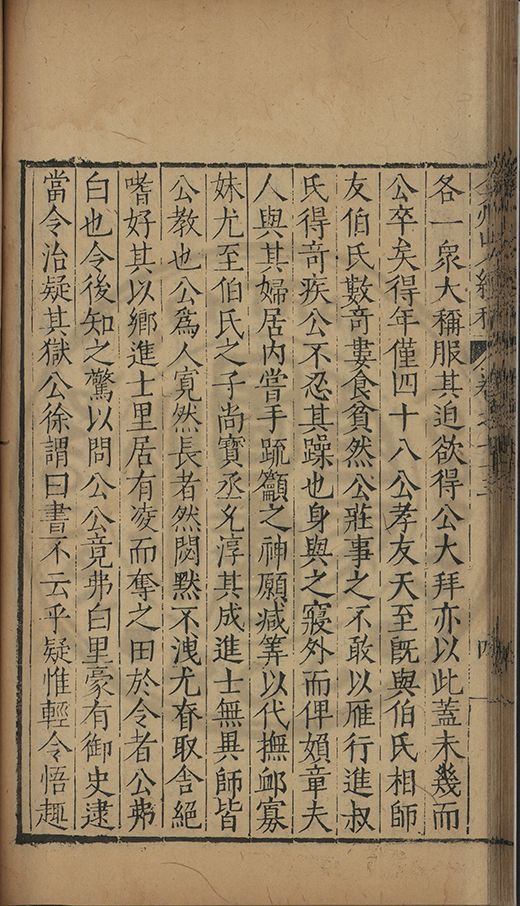 各一衆大稱服其迫欲得公大拜亦以此蓋未幾而
公卒矣得年僅四十八公孝友天至旣與伯氏相師
友伯氏數竒婁食貧然公莊事之不敢以雁行進叔
氏得竒疾公不忍其躁也身與之寢外而俾頮童夫
人與其婦居内嘗手䟽籲之神願减筭以代撫䘏寡
妹尤至伯氏之子尚寶丞允淳其成進士無異師皆
公教也公爲人寛然長者然閟黙不洩尤眘取舍絶
嗜好其以鄉進士里居有凌而奪之田於令者公弗
白也令後知之驚以問公公竟弗白里豪有御史逮
當令治疑其獄公徐謂曰書不云乎疑惟輕令悟趣